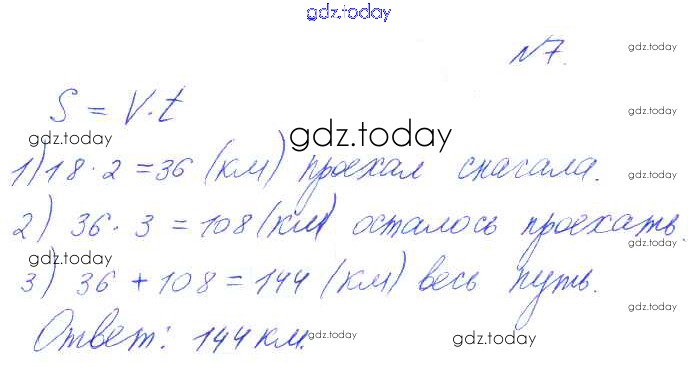 gdz.today
N7.
gdz.today
S = V·t
gdz.today
gdz.today
gdz.today
1) 18·2 = 36 (км) проехал сначала.
gdz.today
2) 36·3 = 108 (км) осталось проехать.
gdz.today
gdz.today
3) 36 + 108 = 144 (км) весь путь.
gdz.today
Ответ: 144 км.
gdz.today
gdz.today
gdz.today